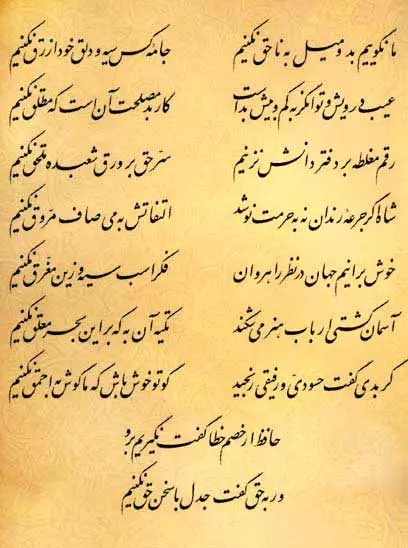 ما نگوییم بد و میل به ناحق نکنیم جامهٔ کس سیه و دلق خود ازرق نکنیم
عیب درویش و توانگر به کم و بیش بد است کار بد مصلحت آن است که مطلق نکنیم
رقم مغلطه بر دفتر دانش نزنیم سرّ حق بر ورق شعبده ملحق نکنیم
شاه اگر جرعهٔ رندان نه به حرمت نوشد التفاتش به می صاف مروّق نکنیم
خوش برانیم جهان در نظر راهروان فکر اسب سیه و زین مغرّق نکنیم
آسمان کشتی ارباب هنر می‌شکند تکیه آن به که بر این بحر معلّق نکنیم
گر بدی گفت حسودی و رفیقی رنجید گو تو خوش باش که ما گوش به احمق نکنیم
حافظ ار خصم خطا گفت نگیریم بر او
ور به حق گفت جدل با سخن حق نکنیم